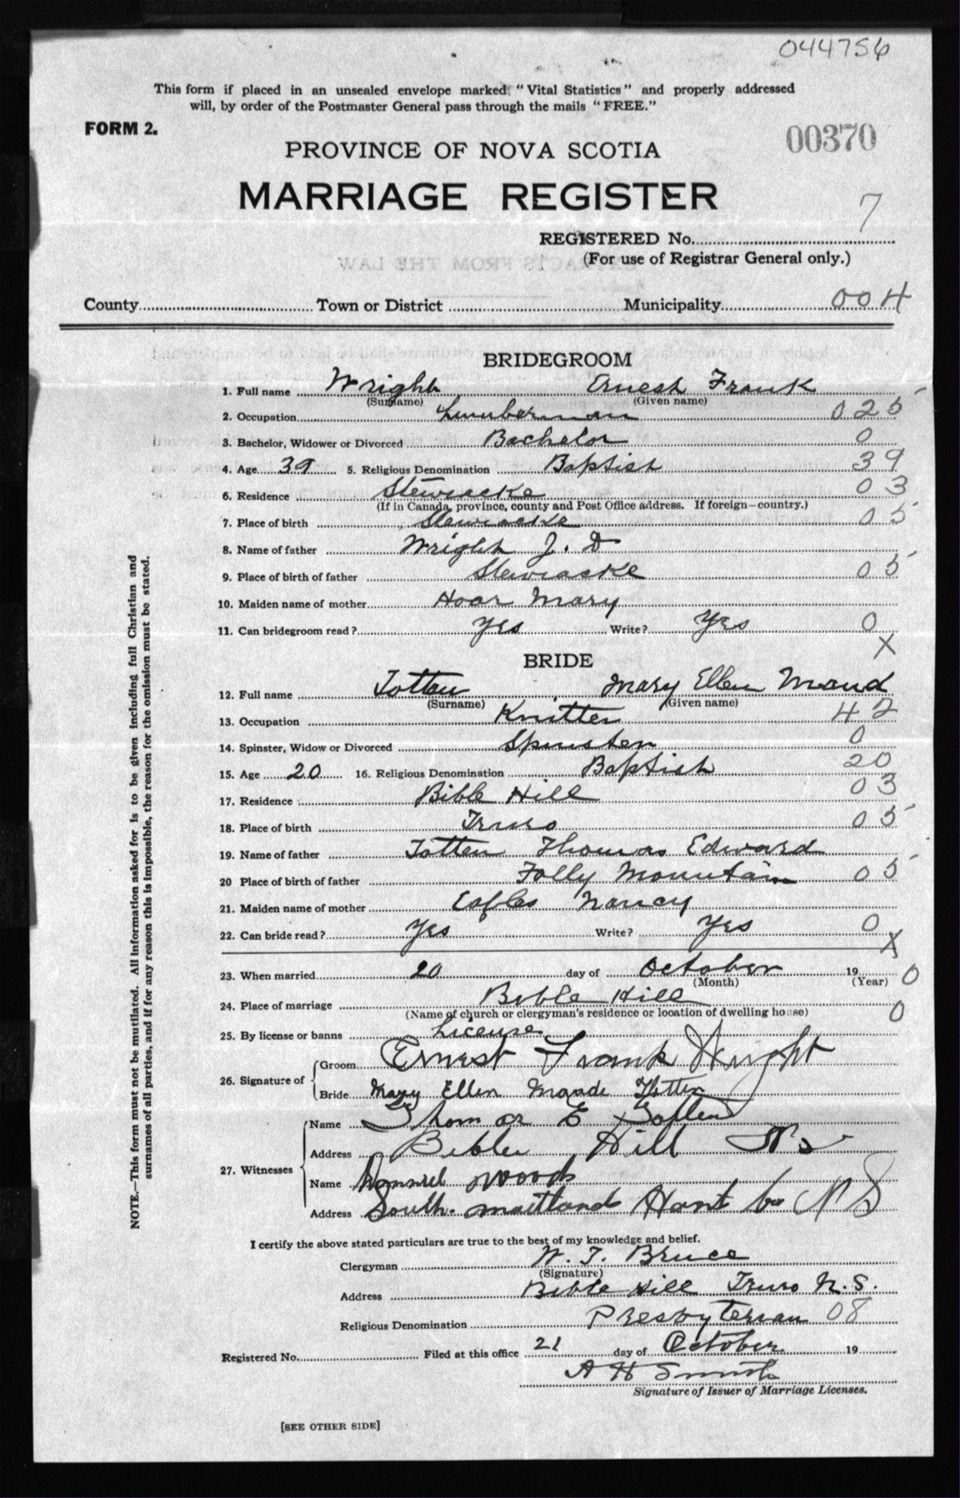 044756
This form if placed in an unsealed envelope marked "Vital Statistics" and properly addressed
will, by order of the Postmaster General pass through the mails "FREE."
FORM 2.
00370
PROVINCE OF NOVA SCOTIA
MARRIAGE REGISTER
7
REGISTERED No.
(For use of Registrar General only.)
EXTRACTS FROM THE LAW
County Town or District Municipality 004
BRIDEGROOM
1. Full name Wright Ernest Frank
(Surname) (Given name)
2. Occupation Lumberman 025
3. Bachelor, Widower or Divorced Bachelor 0
4. Age 39 5. Religious Denomination Baptist 39
6. Residence Stewiacke 03
(If in Canada, province, county and Post Office address. If foreign—country.)
7. Place of birth Stewiacke 05
8. Name of father Wright J. D
9. Place of birth of father Stewiacke 05
10. Maiden name of mother Hoar Mary
11. Can bridegroom read? Yes Write? Yes 0
X
BRIDE
12. Full name Totten Mary Ellen Maud
(Surname) (Given name)
13. Occupation Knitter 42
14. Spinster, Widow or Divorced Spinster 0
15. Age 20 16. Religious Denomination Baptist 20
17. Residence Bible Hill 03
18. Place of birth Truro 05
19. Name of father Totten Thomas Edward
20 Place of birth of father Folly Mountain 05
21. Maiden name of mother Nancy
22. Can bride read? Yes Write? Yes 0
X
23. When married 20 day of October 19 0
(Month) (Year)
24. Place of marriage Bible Hill 0
(Name of church or clergyman's residence or location of dwelling house)
25. By license or banns License
26. Signature of Groom Ernest Frank Wright
Bride Mary Ellen Maude Totten
27. Witnesses Name Thomas E Totten
Address Bible Hill NS
Name Woods
Address South Maitland Hant Co NS
I certify the above stated particulars are true to the best of my knowledge and belief.
Clergyman W. T. Bruce
(Signature)
Address Bible Hill Truro N.S.
Religious Denomination Presbyterian 08
Registered No. Filed at this office 21 day of October 19
A H Smith
Signature of Issuer of Marriage Licenses.
[SEE OTHER SIDE]
NOTE.—This form must not be mutilated. All information asked for is to be given including full Christian and
surnames of all parties, and if for any reason this is impossible, the reason for the omission must be stated.